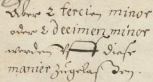 Aber 2 tercien minor
oder 2 Decimen minor
werden Uff diese
manier zugelaßen.